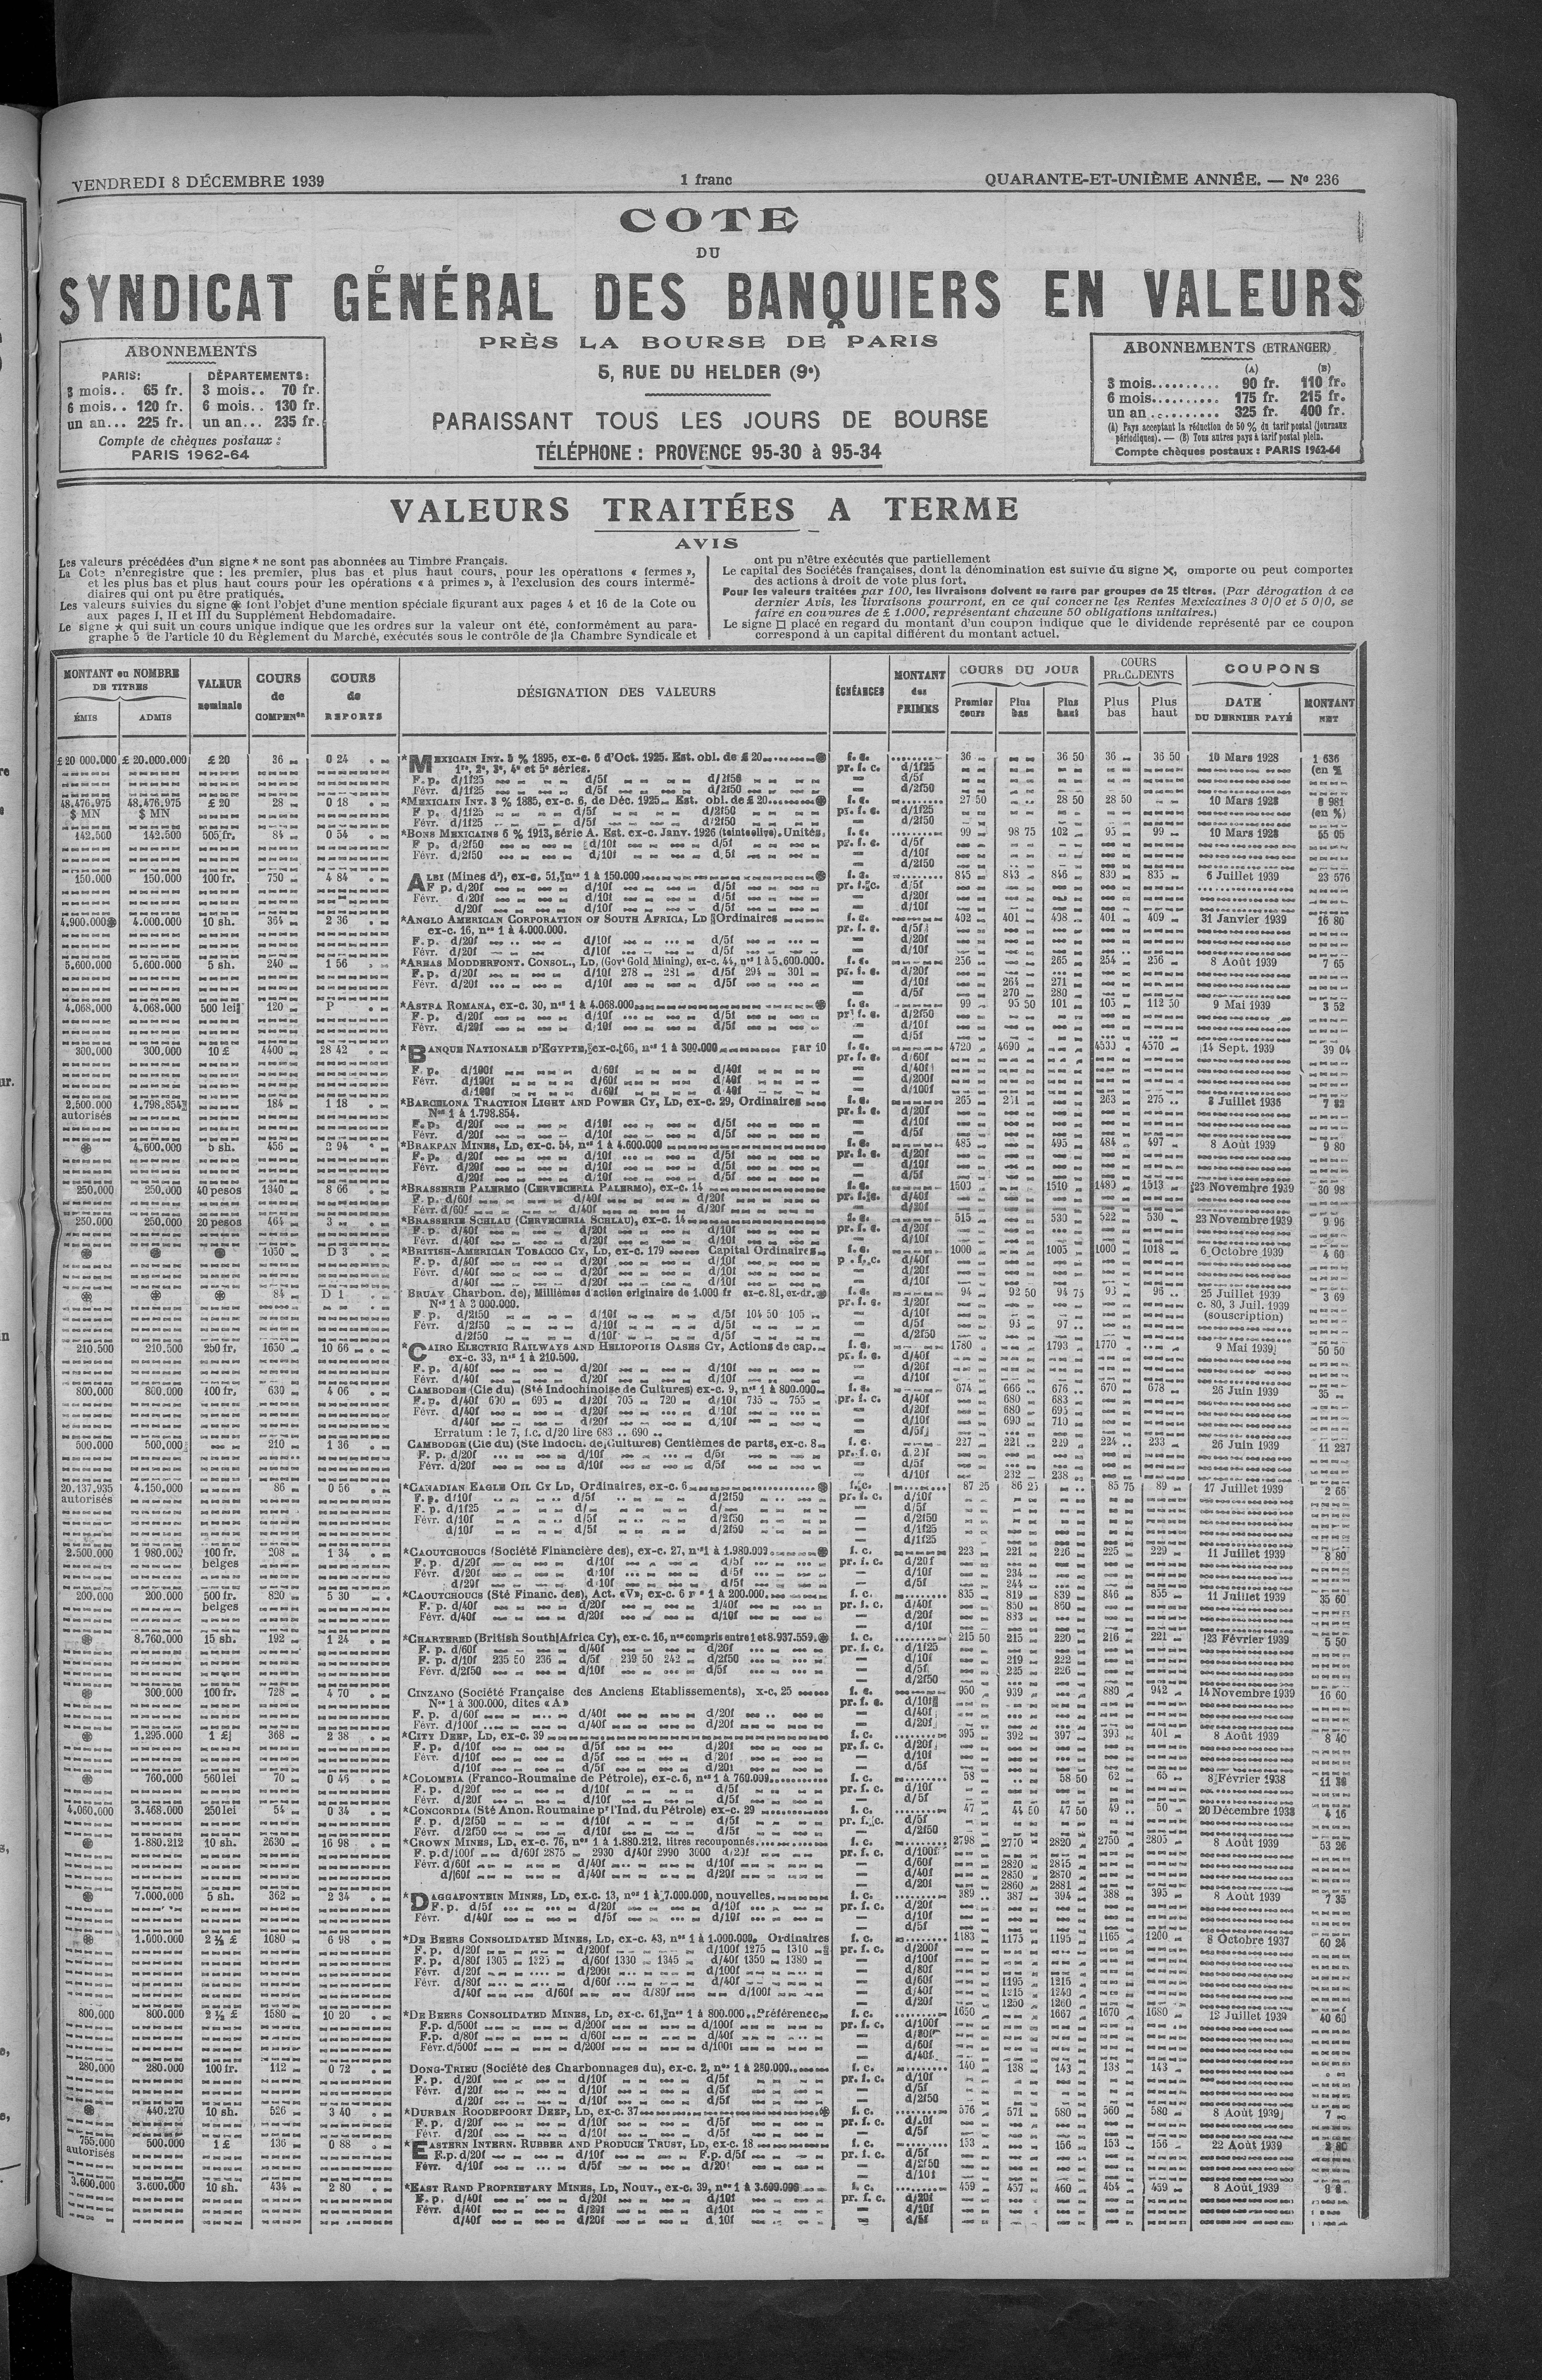 VENDREDI 8 DÉCEMBRE 1939
1 franc
QUARANTE-ET-UNIÈME ANNÉE. — No 236
COTE
DU
SYNDICAT GÉNÉRAL DES BANQUIERS EN VALEURS
PRÈS LA BOURSE DE PARIS
5, RUE DU HELDER (9e)
PARAISSANT TOUS LES JOURS DE BOURSE
TÉLÉPHONE : PROVENCE 95-30 à 95-34
ABONNEMENTS
PARIS: DÉPARTEMENTS:
3 mois.. 65 fr. 3 mois.. 70 fr.
6 mois.. 120 fr. 6 mois.. 130 fr.
un an... 225 fr. un an... 235 fr.
Compte de chèques postaux :
PARIS 1962-64
ABONNEMENTS (ETRANGER)
(A) (B)
3 mois.......... 90 fr. 110 fr.
6 mois.......... 175 fr. 215 fr.
un an .......... 325 fr. 400 fr.
(A) Pays acceptant la réduction de 50 % du tarif postal (journaux
périodiques). — (B) Tous autres pays à tarif postal plein.
Compte chèques postaux : PARIS 1962-64
VALEURS TRAITÉES A TERME
AVIS
Les valeurs précédées d'un signe * ne sont pas abonnées au Timbre Français.
La Cote n'enregistre que : les premier, plus bas et plus haut cours, pour les opérations « fermes »,
et les plus bas et plus haut cours pour les opérations « à primes », à l'exclusion des cours intermé-
diaires qui ont pu être pratiqués.
Les valeurs suivies du signe ⊛ font l'objet d'une mention spéciale figurant aux pages 4 et 16 de la Cote ou
aux pages I, II et III du Supplément Hebdomadaire.
Le signe ★ qui suit un cours unique indique que les ordres sur la valeur ont été, conformément au para-
graphe 5 de l'article 10 du Règlement du Marché, exécutés sous le contrôle de la Chambre Syndicale et
ont pu n'être exécutés que partiellement
Le capital des Sociétés françaises, dont la dénomination est suivie du signe ✕, omporte ou peut comporter
des actions à droit de vote plus fort.
Pour les valeurs traitées par 100, les livraisons doivent se faire par groupes de 25 titres. (Par dérogation à ce
dernier Avis, les livraisons pourront, en ce qui concerne les Rentes Mexicaines 3 0/0 et 5 0/0, se
faire en coupures de £ 1.000, représentant chacune 50 obligations unitaires.)
Le signe □ placé en regard du montant d'un coupon indique que le dividende représenté par ce coupon
correspond à un capital différent du montant actuel.
MONTANT ou NOMBRE DE TITRES
ÉMIS ADMIS
VALEUR nominale
COURS de COMPENson
COURS de REPORTS
DÉSIGNATION DES VALEURS
ÉCHÉANCES
MONTANT des PRIMES
COURS DU JOUR
Premier cours Plus bas Plus haut
COURS PRÉCÉDENTS
Plus bas Plus haut
COUPONS
DATE DU DERNIER PAYÉ MONTANT NET
£ 20 000.000 £ 20.000.000 £ 20 36 0 24 *MEXICAIN INT. 5 % 1895, ex-c. 6 d'Oct. 1925. Est. obl. de £ 20 f. c. 36 36 50 36 36 50 10 Mars 1928 1 636
1re, 2e, 3e, 4e et 5e séries. pr. f. c. d/1f25 (en %)
F. p. d/1f25 d/5f d/2f50 d/5f
Févr. d/1f25 d/5f d/2f50 d/2f50
48.476.975 48.476.975 £ 20 28 0 18 *MEXICAIN INT. 3 % 1885, ex-c. 6, de Déc. 1925 Est. obl. de £ 20 f. c. 27 50 28 50 28 50 10 Mars 1928 981
$ MN $ MN F p. d/1f25 d/5f d/2f50 pr. f. c. d/1f25 (en %)
Févr. d/1f25 d/5f d/2f50 d/2f50
142.500 142.500 505 fr. 84 0 54 *BONS MEXICAINS 6 % 1913, série A. Est. ex-c. Janv. 1926 (teinte olive). Unités f. c. 99 98 75 102 95 99 10 Mars 1928 55 05
F p. d/2f50 d/10f d/5f pr. f. c. d/5f
Févr. d/2f50 d/10f d/5f d/10f
d/2f50
150.000 150.000 100 fr. 750 4 84 ALBI (Mines d'), ex-c. 51, nos 1 à 150.000 f. c. 845 843 846 839 835 6 Juillet 1939 23 576
F p. d/20f d/10f d/5f pr. f. c. d/5f
Févr. d/20f d/10f d/5f d/20f
d/20f d/10f d/5f d/10f
4.900.000⊛ 4.000.000 10 sh. 364 2 36 *ANGLO AMERICAN CORPORATION OF SOUTH AFRICA, LD Ordinaires f. c. 402 401 408 401 409 31 Janvier 1939 16 80
ex-c. 16, nos 1 à 4.000.000. pr. f. c. d/5f
F. p. d/20f d/10f d/5f d/20f
Févr. d/20f d/10f d/5f d/10f
5.600.000 5.600.000 5 sh. 240 1 56 *AREAS MODDERFONT. CONSOL., LD, (Govt Gold Mining), ex-c. 44, nos 1 à 5.600.000. f. c. 256 265 254 256 8 Août 1939 7 65
F. p. d/20f d/10f 278 281 d/5f 294 301 pr. f. c. d/20f
Févr. d/20f d/10f d/5f d/10f 264 271
d/5f 270 280
4.068.000 4.068.000 500 lei 120 P *ASTRA ROMANA, ex-c. 30, nos 1 à 4.068.000 f. c. 99 95 50 101 105 112 50 9 Mai 1939 3 52
F. p. d/20f d/10f d/5f pr. f. c. d/2f50
Févr. d/20f d/10f d/5f d/10f
d/5f
300.000 300.000 10 £ 4400 28 42 *BANQUE NATIONALE D'EGYPTE, ex-c. 66, nos 1 à 300.000 par 10 f. c. 4720 4690 4530 4570 14 Sept. 1939 39 04
pr. f. c. d/60f
F. p. d/100f d/60f d/40f d/40f
Févr. d/100f d/60f d/40f d/200f
d/100f d/60f d/40f d/100f
2.500.000 1.798.854 184 1 18 *BARCELONA TRACTION LIGHT AND POWER CY, LD, ex-c. 29, Ordinaires f. c. 265 251 263 275 3 Juillet 1936 7 82
autorisés Nos 1 à 1.798.854. pr. f. c. d/20f
F. p. d/20f d/10f d/5f d/10f
Févr. d/20f d/10f d/5f d/5f
⊛ 4.600.000 5 sh. 456 2 94 *BRAKPAN MINES, LD, ex-c. 54, nos 1 à 4.600.000 f. c. 485 495 484 497 8 Août 1939 9 80
F. p. d/20f d/10f d/5f pr. f. c. d/20f
Févr. d/20f d/10f d/5f d/10f
d/20f d/10f d/5f d/5f
250.000 250.000 40 pesos 1340 8 66 *BRASSERIE PALERMO (CERVECERIA PALERMO), ex-c. 14 f. c. 1503 1510 1489 1513 23 Novembre 1939 30 98
F. p. d/60f d/40f d/20f pr. f. c. d/40f
Févr. d/60f d/40f d/20f d/20f
250.000 250.000 20 pesos 464 3 *BRASSERIE SCHLAU (CERVECERIA SCHLAU), ex-c. 14 f. c. 515 530 522 530 23 Novembre 1939 9 96
F. p. d/40f d/20f d/10f pr. f. c. d/20f
Févr. d/40f d/20f d/10f d/10f
⊛ ⊛ ⊛ 1050 D 3 *BRITISH-AMERICAN TOBACCO CY, LD, ex-c. 179 Capital Ordinaires f. c. 1000 1005 1000 1018 6 Octobre 1939 4 60
F. p. d/40f d/20f d/10f p. f. c. d/40f
Févr. d/40f d/20f d/10f d/20f
d/40f d/20f d/10f d/10f
⊛ ⊛ ⊛ 84 D 1 BRUAY Charbon. de), Millièmes d'action originaire de 1.000 fr ex-c. 81, ex-dr.⊛ f. c. 94 92 50 94 75 93 96 25 Juillet 1939 3 69
Nos 1 à 3 000.000. pr. f. c. d/20f c. 80, 3 Juil. 1939
F. p. d/2f50 d/10f d/5f 104 50 105 d/10f (souscription)
Févr. d/2f50 d/10f d/5f d/5f 95 97
d/2f50 d/10f d/5f d/2f50
210.500 210.500 250 fr. 1650 10 66 *CAIRO ELECTRIC RAILWAYS AND HELIOPOLIS OASES CY, Actions de cap. f. c. 1780 1793 1770 9 Mai 1939 50 50
ex-c. 33, nos 1 à 210.500. pr. f. c. d/40f
F. p. d/40f d/20f d/10f d/20f
Févr. d/40f d/20f d/10f d/10f
800.000 800.000 100 fr. 630 4 06 CAMBODGE (Cie du) (Sté Indochinoise de Cultures) ex-c. 9, nos 1 à 800.000 f. c. 674 666 676 670 678 26 Juin 1939 35
F. p. d/40f 690 695 d/20f 705 720 d/10f 735 755 pr. f. c. d/40f 680 683
Févr. d/40f d/20f d/10f d/20f 680 695
d/40f d/20f d/10f d/10f 690 710
Erratum : le 7, f.c. d/20 lire 683 .. 690 .. d/5f
500.000 500.000 210 1 36 CAMBODGE (Cie du) (Sté Indoch. de Cultures) Centièmes de parts, ex-c. 8 f. c. 227 221 229 224 233 26 Juin 1939 11 227
F. p. d/20f d/10f d/5f pr. f. c. d/20f
Févr. d/20f d/10f d/5f d/5f
d/10f 232 238
20.137.935 4.150.000 86 0 56 *CANADIAN EAGLE OIL CY LD, Ordinaires, ex-c. 6 f. c. 87 25 86 25 85 75 89 17 Juillet 1939 2 66
autorisés F. p. d/10f d/5f d/2f50 pr. f. c. d/10f
F. p. d/1f25 d/ d/ d/5f
Févr. d/10f d/5f d/2f50 d/2f50
d/10f d/5f d/2f50 d/1f25
d/1f25
2.500.000 1 980.000 100 fr. 208 1 34 *CAOUTCHOUCS (Société Financière des), ex-c. 27, nos 1 à 1.980.000 f. c. 223 221 226 225 229 11 Juillet 1939 8 80
belges F. p. d/20f d/10f d/5f pr. f. c. d/20f
Févr. d/20f d/10f d/5f d/10f 234
d/20f d/10f d/5f d/5f 244
200.000 200.000 500 fr. 820 5 30 *CAOUTCHOUCS (Sté Financ. des), Act. «V», ex-c. 6 nos 1 à 200.000. f. c. 835 819 839 846 855 11 Juillet 1939 35 60
belges F. p. d/40f d/20f d/10f pr. f. c. d/40f 850 860
Févr. d/40f d/20f d/10f d/20f 833
d/10f
⊛ 8.760.000 15 sh. 192 1 24 *CHARTERED (British South Africa Cy), ex-c. 16, nos compris entre 1 et 8.937.559.⊛ f. c. 215 50 215 220 216 221 23 Février 1939 5 50
F. p. d/60f d/40f d/20f pr. f. c. d/1f25
F. p. d/10f 235 50 236 d/5f 239 50 242 d/2f50 d/10f 219 222
Févr. d/2f50 d/10f d/5f d/5f 225 226
d/2f50
⊛ 300.000 100 fr. 728 4 70 CINZANO (Société Française des Anciens Etablissements), x-c. 25 f. c. 950 939 880 942 14 Novembre 1939 16 60
Nos 1 à 300.000, dites «A» pr. f. c. d/10f
F. p. d/60f d/40f d/20f d/40f
Févr. d/100f d/40f d/20f d/20f
⊛ 1.295.000 1 £ 368 2 38 *CITY DEEP, LD, ex-c. 39 f. c. 395 392 397 393 401 8 Août 1939 8 40
F. p. d/10f d/5f d/20f pr. f. c. d/20f
Févr. d/10f d/5f d/20f d/10f
d/10f d/5f d/20f d/5f
⊛ 760.000 560 lei 70 0 46 *COLOMBIA (Franco-Roumaine de Pétrole), ex-c. 6, nos 1 à 760.000 f. c. 58 58 50 62 65 8 Février 1938
F. p. d/20f d/10f d/5f pr. f. c. d/10f
Févr. d/20f d/10f d/5f d/5f
4.060.000 3.468.000 250 lei 54 0 34 *CONCORDIA (Sté Anon. Roumaine pr l'Ind. du Pétrole) ex-c. 29 f. c. 47 44 50 47 50 49 50 20 Décembre 1938 4 16
F. p. d/2f50 d/10f d/5f pr. f. c. d/5f
Févr. d/2f50 d/10f d/5f d/2f50
⊛ 1.880.212 10 sh. 2630 16 98 *CROWN MINES, LD, ex-c. 76, nos 1 à 1.880.212, titres recouponnés f. c. 2798 2770 2820 2750 2805 8 Août 1939 53 26
F. p. d/100f d/60f 2875 2930 d/40f 2990 3000 d/20f pr. f. c. d/100f
Févr. d/60f d/40f d/10f d/60f 2820 2845
d/60f d/40f d/20f d/40f 2850 2870
d/20f 2860 2881
⊛ 7.000.000 5 sh. 362 2 34 *DAGGAFONTEIN MINES, LD, ex.c. 13, nos 1 à 7.000.000, nouvelles f. c. 389 387 394 388 395 8 Août 1939 7 35
F. p. d/5f d/20f d/10f pr. f. c. d/20f
Févr. d/40f d/5f d/10f d/10f
d/5f
⊛ 1.000.000 2 ½ £ 1080 6 98 *DE BEERS CONSOLIDATED MINES, LD, ex-c. 43, nos 1 à 1.000.000. Ordinaires f. c. 1183 1175 1195 1165 1200 8 Octobre 1937 60 24
F. p. d/20f d/200f d/100f 1275 1310 pr. f. c. d/200f
F. p. d/80f 1305 1325 d/60f 1330 1345 d/40f 1350 1380 d/100f
Févr. d/20f d/200f d/100f d/80f
Févr. d/80f d/60f d/40f d/60f 1195 1215
d/40f d/60f d/80f d/100f d/40f 1215 1240
d/20f 1250 1260
800.000 800.000 2 ½ £ 1580 10 20 *DE BEERS CONSOLIDATED MINES, LD, ex-c. 61, nos 1 à 800.000 Préférence f. c. 1650 1667 1670 1680 12 Juillet 1939 40 60
F.p. d/500f d/200f d/100f pr. f. c. d/100f
F.p. d/80f d/60f d/40f d/80f
Févr. d/500f d/200f d/100f d/60f
d/40f
280.000 280.000 100 fr. 112 0 72 DONG-TRIEU (Société des Charbonnages du), ex-c. 2, nos 1 à 280.000 f. c. 140 138 143 138 143
F. p. d/20f d/10f d/5f pr. f. c. d/10f
Févr. d/20f d/10f d/5f d/5f
d/20f d/10f d/5f d/2f50
⊛ 440.270 10 sh. 526 3 40 *DURBAN ROODEPOORT DEEP, LD, ex-c. 37 f. c. 576 571 580 560 580 8 Août 1939 7
F. p. d/20f d/10f d/5f pr. f. c. d/20f
Févr. d/20f d/10f d/5f d/5f
755.000 500.000 1 £ 136 0 88 *EASTERN INTERN. RUBBER AND PRODUCE TRUST, LD, ex-c. 18 f. c. 153 156 153 156 22 Août 1939 2 80
autorisés F.p. d/20f d/10f F.p. d/5f pr. f. c. d/5f
Févr. d/10f d/5f d/20f d/2f50
d/10f
3.600.000 3.600.000 10 sh. 434 2 80 *EAST RAND PROPRIETARY MINES, LD, Nouv., ex-c. 39, nos 1 à 3.600.000 f. c. 459 457 460 454 459 8 Août 1939
F. p. d/40f d/20f d/10f pr. f. c. d/20f
Févr. d/40f d/20f d/10f d/10f
d/40f d/20f d/10f d/5f